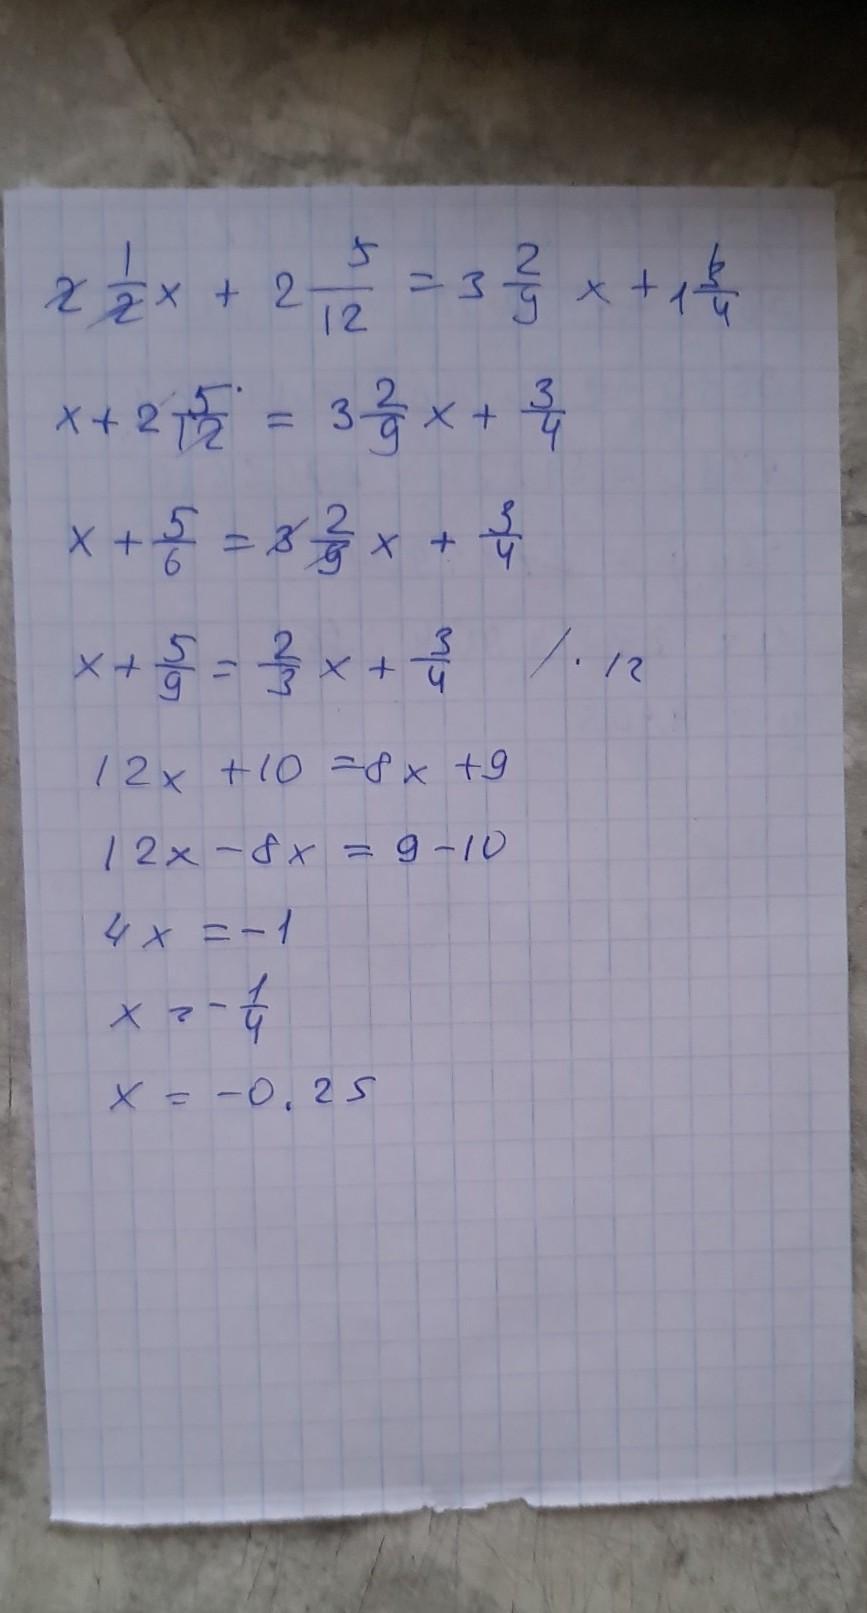 2 1/2 x + 2 5/12 = 3 2/9 x + 1 3/4
x + 2 5/12 = 3 2/9 x + 3/4
x + 5/6 = 3 2/9 x + 3/4
x + 5/9 = 2/3 x + 3/4 /· 12
12x + 10 = 8x + 9
12x - 8x = 9 - 10
4x = -1
x = - 1/4
x = -0.25